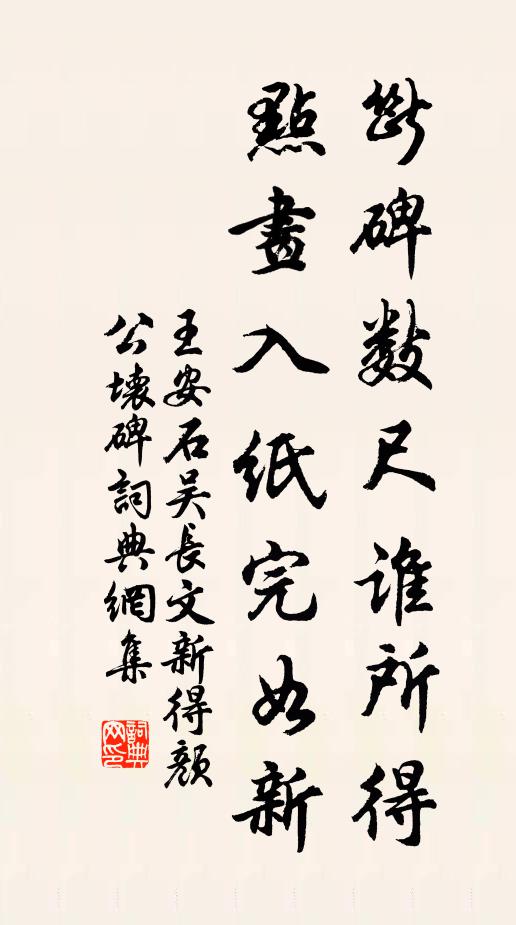 斷碑數尺誰所得
點畫入紙完如新
王安石吳長文新得顏
公壞碑詞典網集
詞典
网印